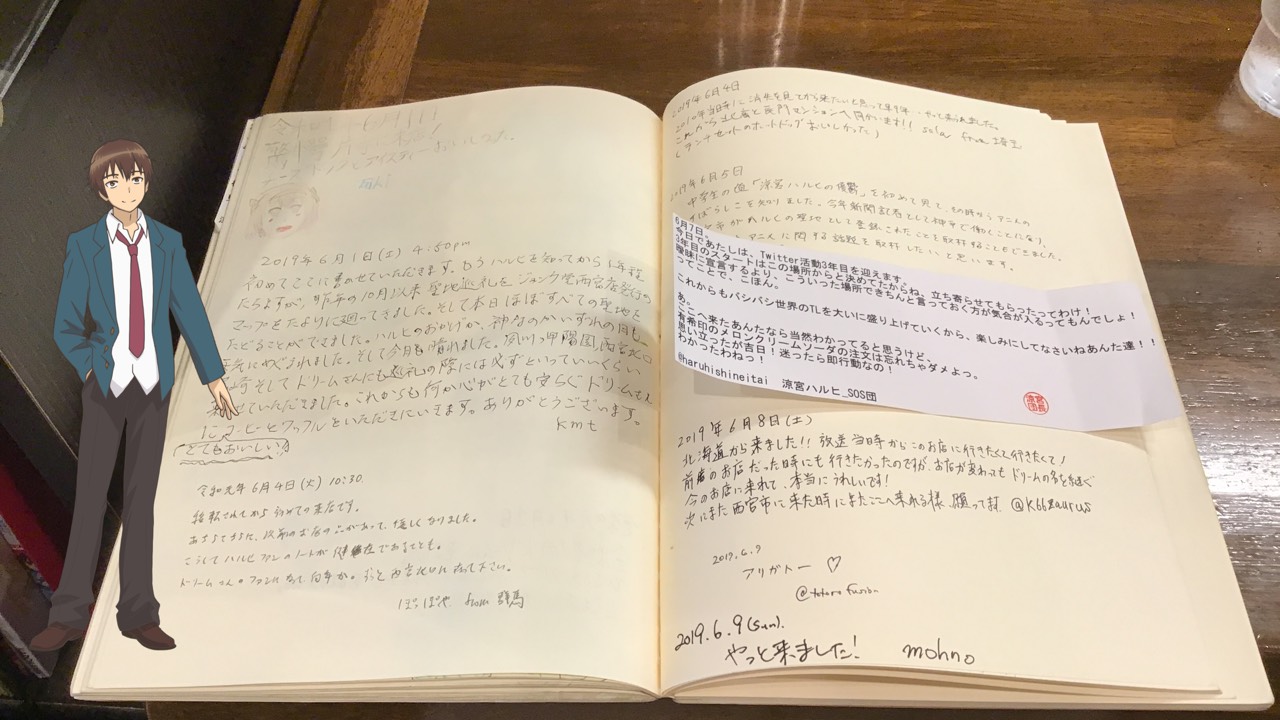 2019年6月1日(土) 4:50pm
初めてここに書かせていただきます。もうハルヒを知ってから1年程
たちますが、昨年の10月以来聖地巡礼をジュンク堂西宮店発行の
マップをたよりに廻ってきました。そして本日ほぼすべての聖地を
たどることができました。ハルヒのおかげか、神なのかいずれの日も
そしてドリームさんにも巡礼の際には必ずといっていいくらい
せていただきました。これからも何か心がとても安らぐドリームさん
にコーヒーとワッフルをいただきにいきます。ありがとうございます。
(とてもおいしい!)
kmt
令和元年6月4日(火) 10:30
移転されてから初めての来店です。
こうしてハルヒファンのノートが健在であることも。
ぽっぽや from 群馬
2019年6月4日
2010年当時に消失を見てから来たいと思って早9年…やって来られました。
これから北高と長門マンションへ向かいます!! sola from 埼玉
(ランチセットのホットドッグおいしかった)
2019年6月5日
中学生の頃「涼宮ハルヒの憂鬱」を初めて見て、その時からアニメの
すばらしさを知りました。今年新聞記者として神戸で働くことになり、
がハルヒの聖地として登録されたことを取材することもできました。
アニメに関する話題を取材したいと思います。
6月7日。
今日であたしは、Twitter活動3年目を迎えます
3年目のスタートはこの場所からと決めてたからね、立ち寄らせてもらったってわけ！
曖昧に宣言するより、こういった場所できちんと言っておく方が気合が入るってもんでしょ！
ってことで、こほん。
これからもバシバシ世界のTLを大いに盛り上げていくから、楽しみにしてなさいねあんた達！！
あ。
ここへ来たあんたなら当然わかってると思うけど、
有希印のメロンクリームソーダの注文は忘れちゃダメよっ。
思い立ったが吉日！迷ったら即行動なの！
わかったわねっ！
@haruhishineitai 涼宮ハルヒ_SOS団
涼宮団長
2019年6月8日(土)
北海道から来ました!! 放送当時からこのお店に行きたくて行きたくて!
前のお店だった時にも行きたかったのですが、お店が変わってもドリームの名を継ぐ
今のお店に来れて、本当にうれしいです!
次にまた西宮市に来た時にまたここへ来れる様、願ってます @k66zaurus
2019.6.9
アリガトー ♡
@totoro fusion
2019.6.9(sun).
やっと来ました! mohno